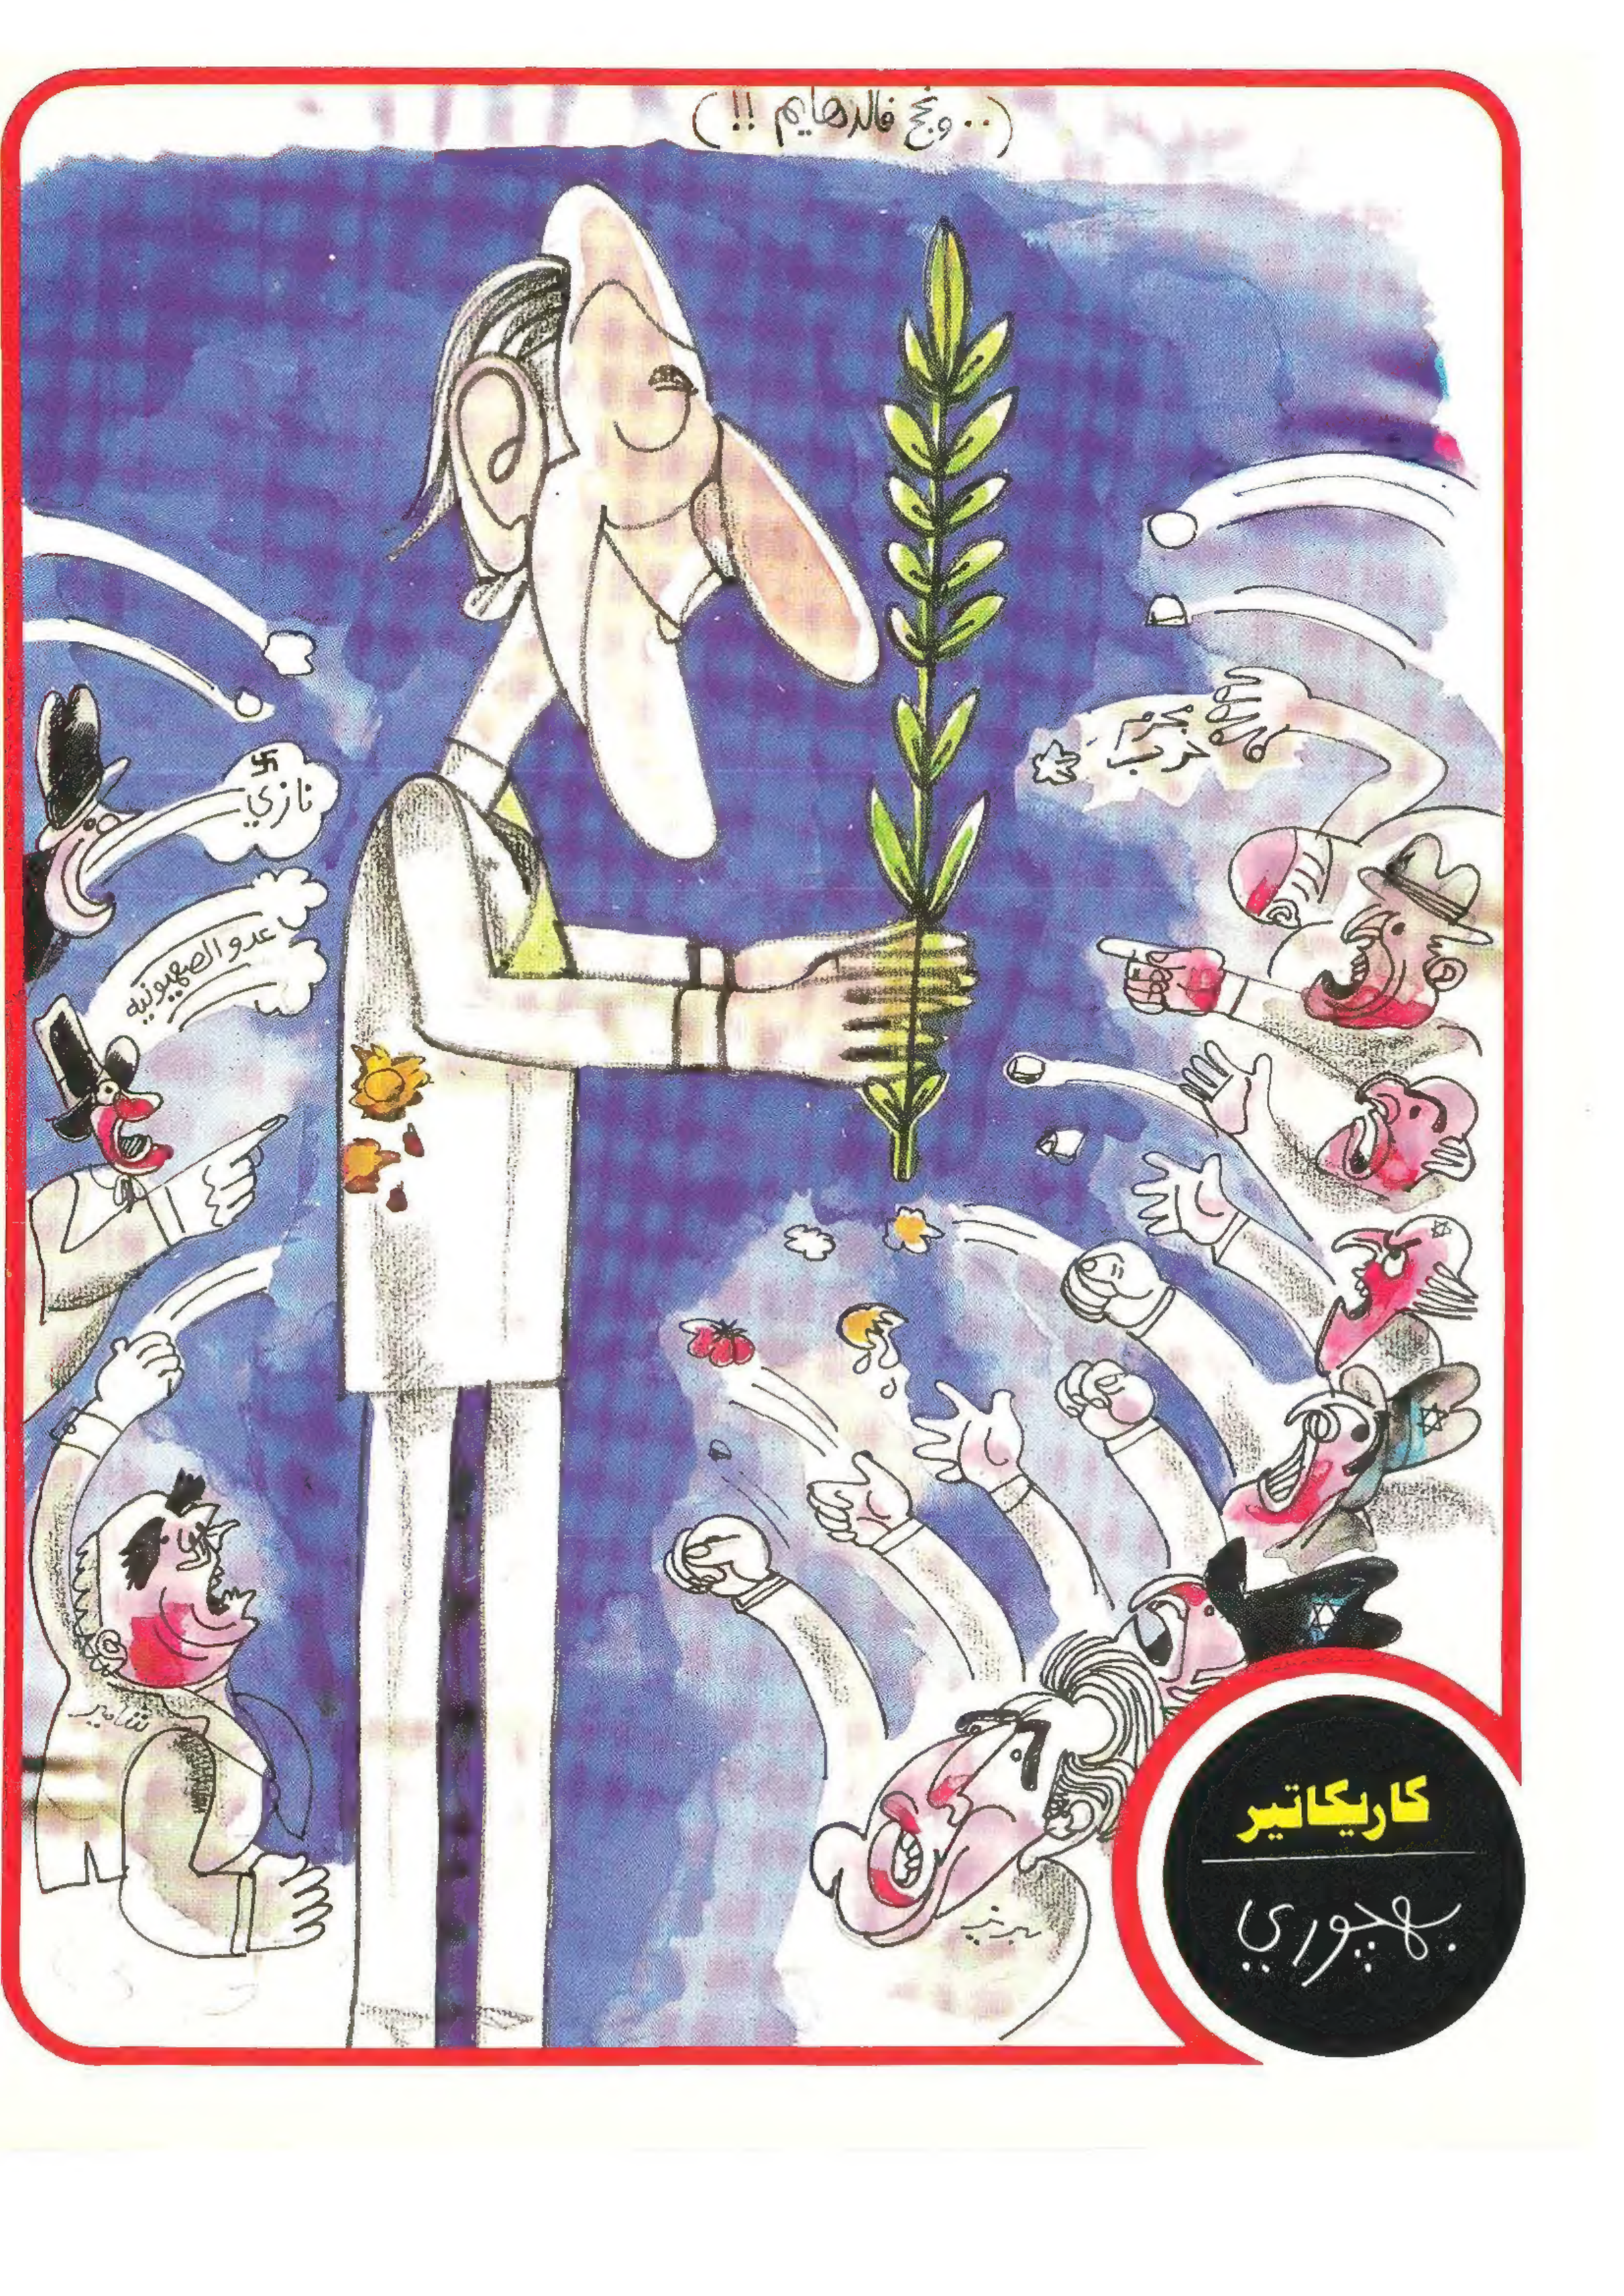 (.. ونجح فالدهايم !!)
نازي
عدو الصهيونيه
شامير
كاريكاتير
بهجوري